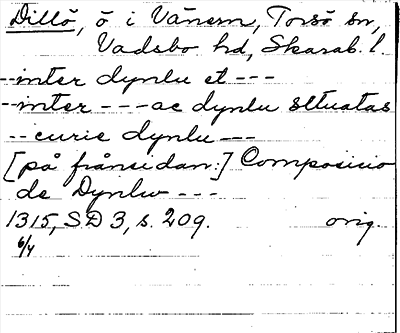 Dillö, ö i Vänern, Torsö sn,
Vadsbo hd, Skarab. l.
--inter dynlu et ---
--inter --- ac dynlu situatas
-- curie dynlu ---
[på frånsidan:] Composicio
de Dynlu ---
1315, SD 3, s. 209. orig.
6/4